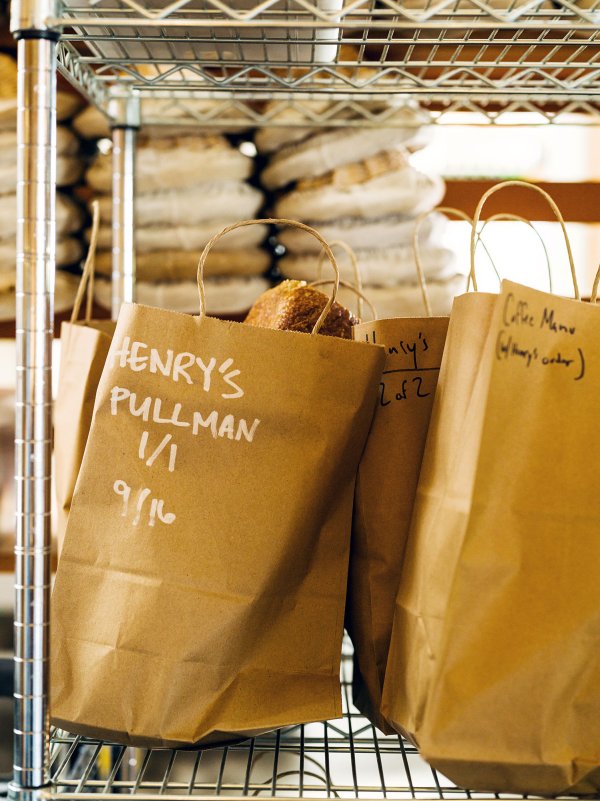 HENRY'S
PULLMAN
1/1
9/16
Henry's
2 of 2
Coffee Manu
(w/Henry's order)